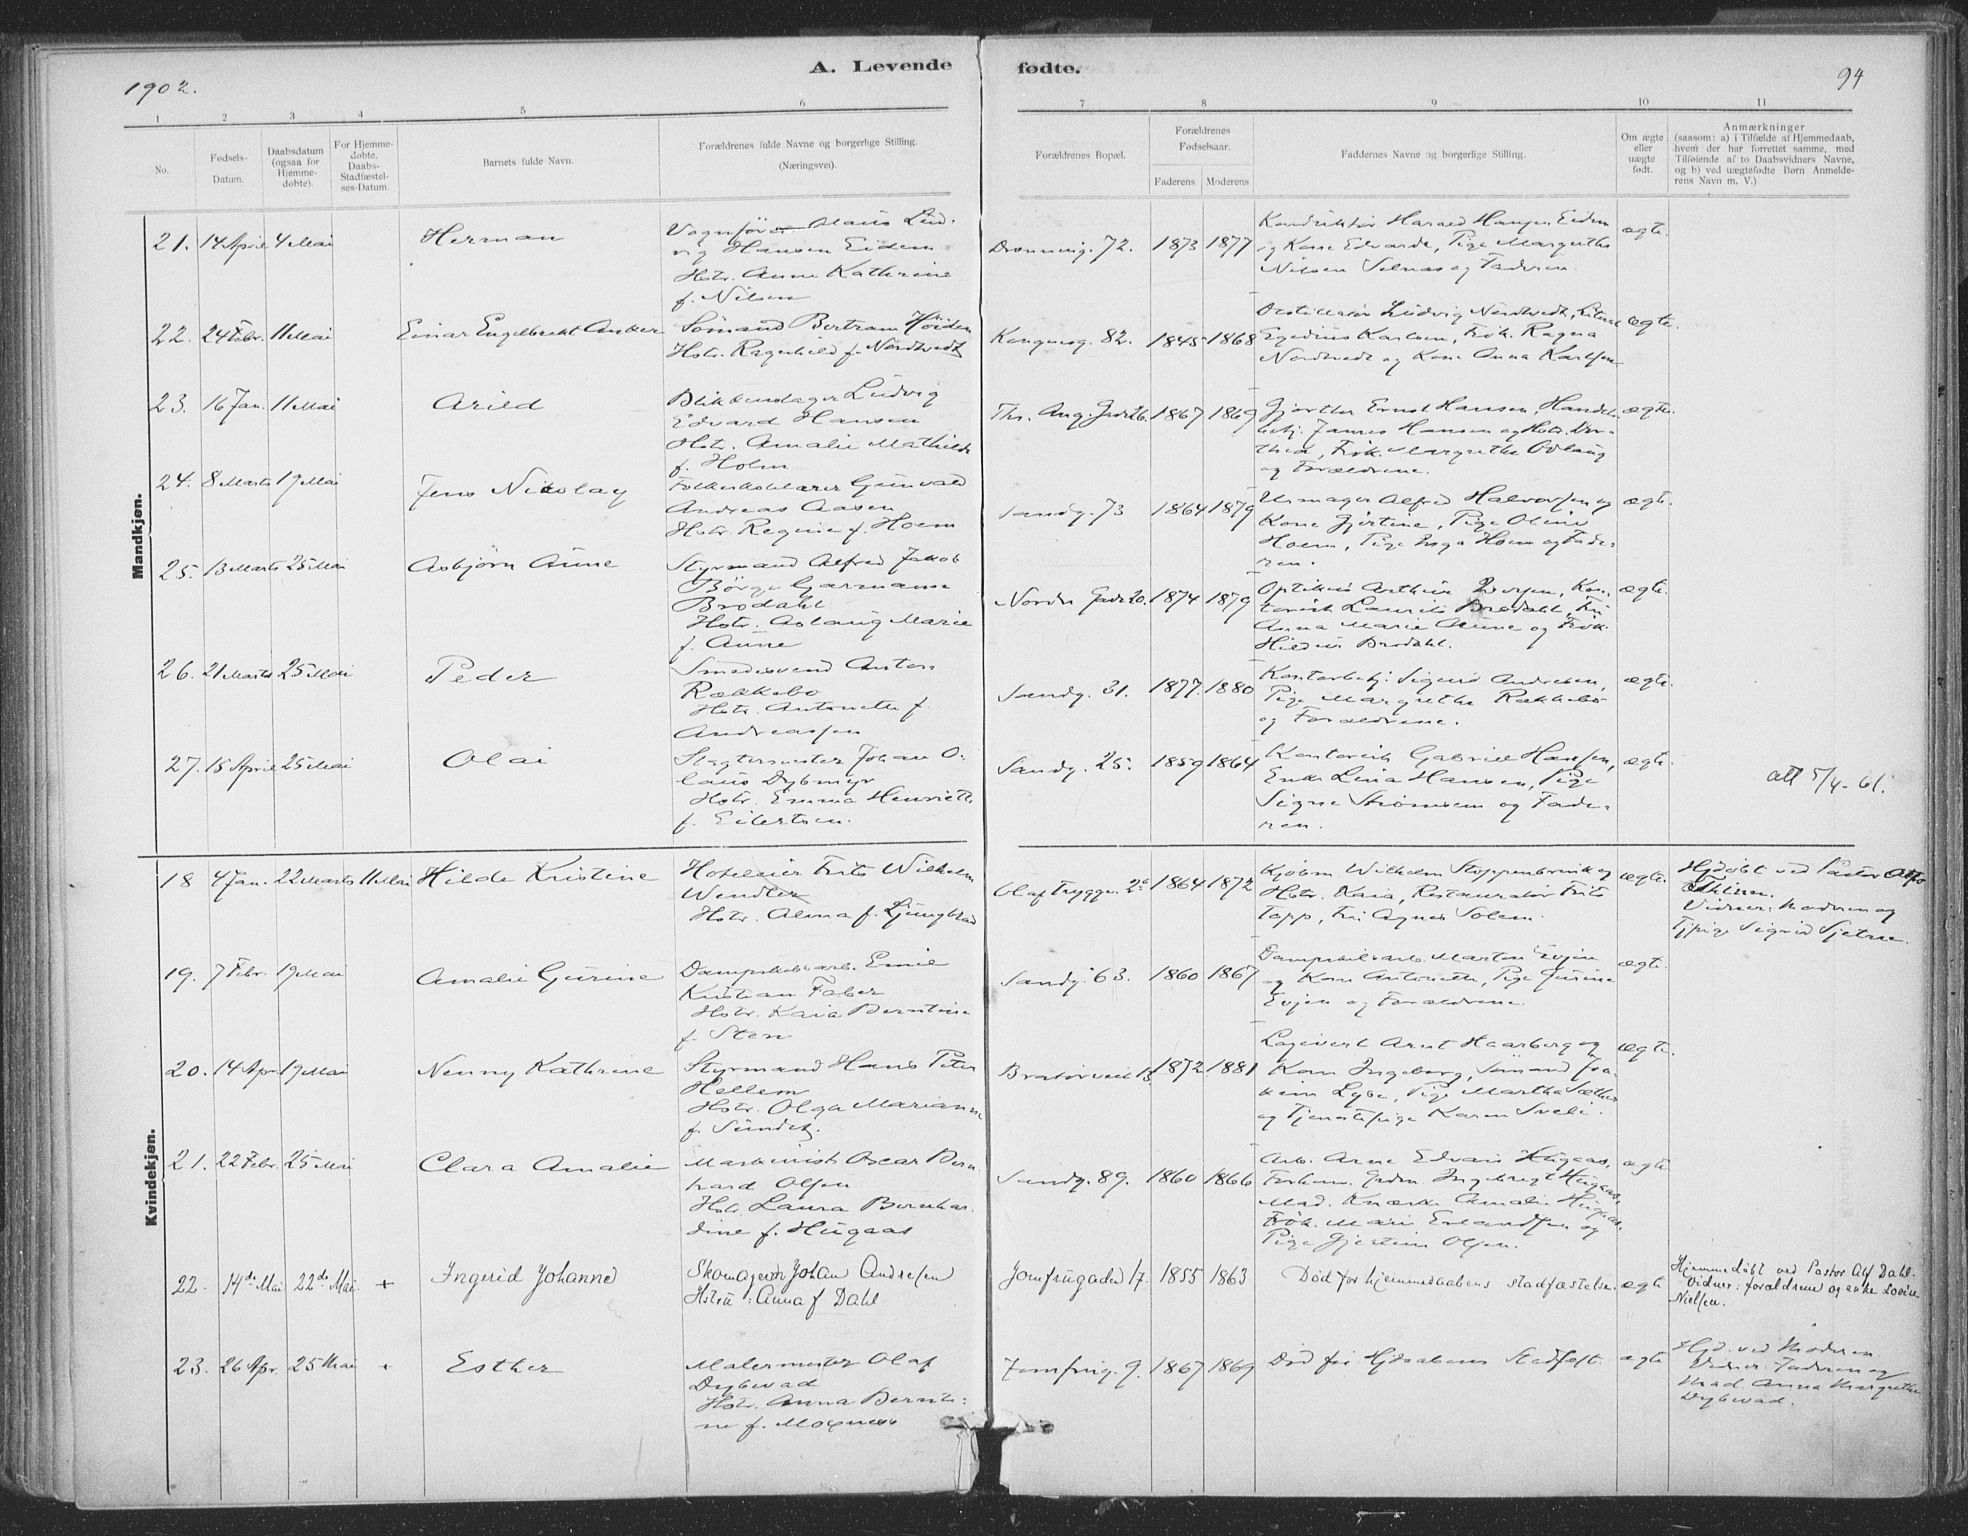 1902.
A. Levende fødte.
94
1 2 3 4 5 6 7 8 9 10 11
No.
Fødsels-
Datum.
Daabsdatum
(ogsaa for
Hjemme-
døbte).
For Hjemme-
døbte.
Daabs-
Stadfæstel-
ses-Datum.
Barnets fulde Navn.
Forældrenes fulde Navne og borgerlige Stilling.
(Næringsvei).
Forældrenes Bopæl.
Forældrenes
Fødselsaar.
Faderens Moderens
Faddernes Navne og borgerlige Stilling.
Om ægte
eller
uægte
født.
Anmærkninger
(saasom: a) i Tilfælde af Hjemmedaab,
hvem der har forrettet samme, med
Tilføiende af to Daabsvidners Navne,
og b) ved uægtefødte Børn Anmelde-
rens Navn m. V.)
Mandkjøn.
21. 14 April 4 Mai
Herman
Vognfører Claus Lud-
vig Hansen Eidem
Hstr. Anna Kathrine
f. Nilsen
Dronning. 72. 1873 1877
Konduktør Harald Hansen Eidem
og Kone Edvarda, Pige Margrethe
Nilsen Selnæs og Faderen.
ægte.
22. 24 Febr. 11 Mai
Einar Engelbrekt Anker
Sømand Bertram Höiden
Hstr. Ragnhild f. Nordtvedt
Kongensg. 82. 1845 1868
Destillatør Ludvig Nordtvedt,
Egedius Karlsen, Frk. Ragna
Nordtvedt og Kone Anna Karlsen
ægte.
23. 16 Jan. 11 Mai
Arild
Blikkenslager Ludvig
Edvard Hansen
Hstr. Amalie Mathilde
f. Holm
Ths. Ang. Gade 26. 1867 1869
Gjørtler Ernst Hansen, Handels-
betj. James Hansen og Hstr. Dor-
thea, Frk. Margrethe Ödlaug
og Forældrene.
ægte.
24. 8 Marts 19 Mai
Jens Nikolay
Folkeskolelærer Gunvald
Andreas Aasen
Hstr. Regine f. Hoem
Sandg. 73 1864 1879
Urmager Alfred Halvorsen og
Kone Gjertine, Pige Oline
Hoem, Pige Inga Hoem og Fade-
ren.
ægte.
25. 13 Marts 25 Mai
Asbjörn Aune
Styrmand Alfred Jakob
Börge Garmann
Brodahl
Hstr. Aslaug Marie
f. Aune
Nordre Gade 20. 1874 1879
Optikus Arthur, Kon-
torist Laurits Brodahl, Fru
Anna Marie Aune og Frök.
Brodahl.
ægte.
26. 21 Marts 25 Mai
Peder
Smedesvend Anton
Rækkebo
Hstr. Antonette f.
Andreassen
Sandg. 31. 1877. 1880
Kontorbetj. Sigurd Andresen,
Pige Margrethe Rækkebo
og Forældrene.
ægte.
27. 15 April 25 Mai
Olai
Slagtermester Johan O-
laus Dybmyr
Hstr. Emma Henriette
f. Eilertsen.
Sandg. 25. 1859 1864
Kontorist Gabriel Hansen,
Enke Lina Hansen, Pige
Signe Strömsem og Fade-
ren.
ægte.
att 5/4-61.
Kvindekjøn.
18 4 Jan. 22 Marts 11 Mai
Hilde Kristine
Hoteleier Frits Wilhelm
Wendler
Hstr. Alma f. Ljungblad
Olaf Tryggv. 1864 1872
Kjøbm. Wilhelm Stoppenbrink og
Hstr. Kaia, Restauratør Frits
Topp, Fru Agnes Solem.
ægte.
Hjdøbt ved Pastor Alf
Dahl
Vidner: Moderen og
Tjpige Sigrid Sjetne.
19. 7 Febr. 19 Mai
Amalie Gurine
Dampskibsarb. Emil
Kristian Faber
Hstr. Kaia Berntine
f. Sten
Sandg. 63. 1860 1867
Dampskibsarb. Morten Evjen
og Kone Antonette, Pige Gurine
Evjen og Forældrene.
ægte.
20. 14 Apr 19 Mai
Nenny Kathrine
Styrmand Hans Peter
Hellem
Hstr. Olga Marianne
f. Sundet.
Bratörveit 13 1872 1881
Logivert Arnt Haarberg og
Kone Ingeborg, Sømand Joa-
kim Lyse, Pige Martha Sæther
og Tjenestepige Karen Sveli.
ægte.
21. 22 Febr. 25 Mai
Clara Amalie
Maskinist Oscar Bern-
hard Olsen
Hstr. Laura Bernhar-
dine f. Hugaas
Sandg. 89. 1860 1866
Arb. Arne Edvard Hugaas,
Ingebrigt Hugaas,
Mad. Amalie Hugaas,
Frök. Marie Erlandsen og
Pige Gjertine Olsen.
ægte
22. 14de Mai 22de Mai. +
Ingerid Johanne
Skomagersv Johan Andresen
Hstru: Anna f Dahl
Jomfrugaden 17. 1855 1863
Död før hjemmedaabens stadfæstelse.
ægte
Hjemmedöbt ved Pastor Alf Dahl.
Vidner: forældrene og enke Lovise
Nielsen.
23. 26 Apr. 25 Mai +
Esther
Malermester Olaf
Dybwad
Hstr. Anna Bernti-
ne f. Moxness
Jomfrug. 9. 1867 1869
Död før Hjdaabens Stadfest.
ægte
Hjd. ved Moderen.
Vidner: Faderen og
Mad. Anna Margrethe
Dybwad.